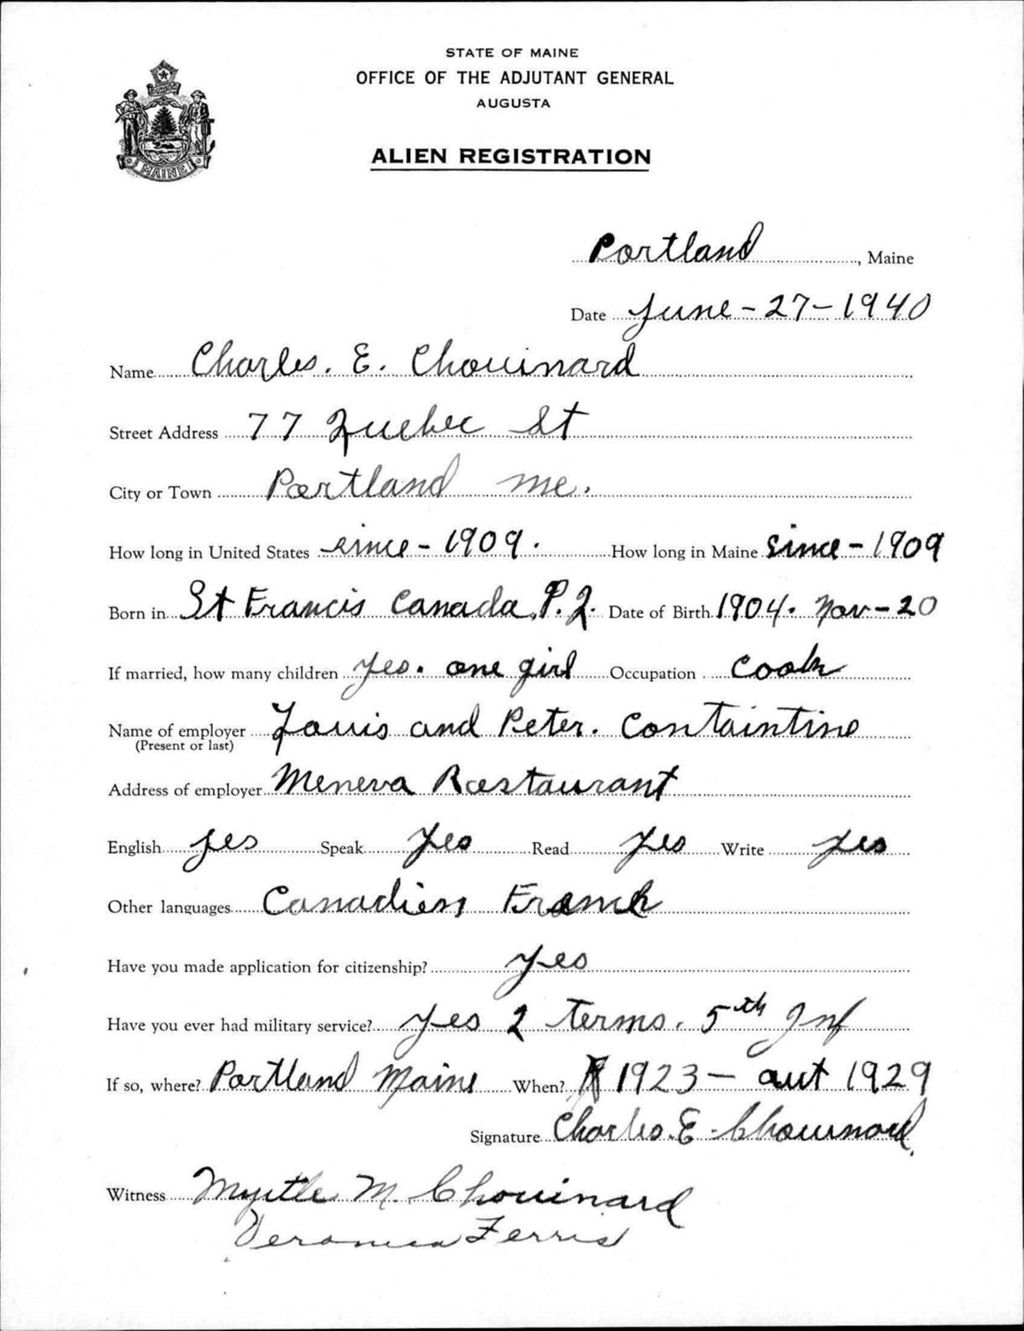 STATE OF MAINE
OFFICE OF THE ADJUTANT GENERAL
AUGUSTA
ALIEN REGISTRATION
MAINE
Portland, Maine
Date June-27-1940
Name Charles. E. Chouinard
Street Address 77 Quebec St
City or Town Portland Me.
How long in United States since-1909. How long in Maine since-1909
Born in St Francis Canada, P.Q. Date of Birth 1904. Nov-20
If married, how many children Yes. one girl Occupation Cook
Name of employer Louis and Peter. Containtine
(Present or last)
Address of employer Meneva Restaurant
English yes Speak Yes Read Yes Write yes
Other languages Canadien French
Have you made application for citizenship? Yes
Have you ever had military service? Yes 2 terms. 5th Inf
If so, where? Portland Maine When? 1923 - out 1929
Signature Charles. E. Chouinard
Witness Myrtle M. Chouinard
Veronica Ferris